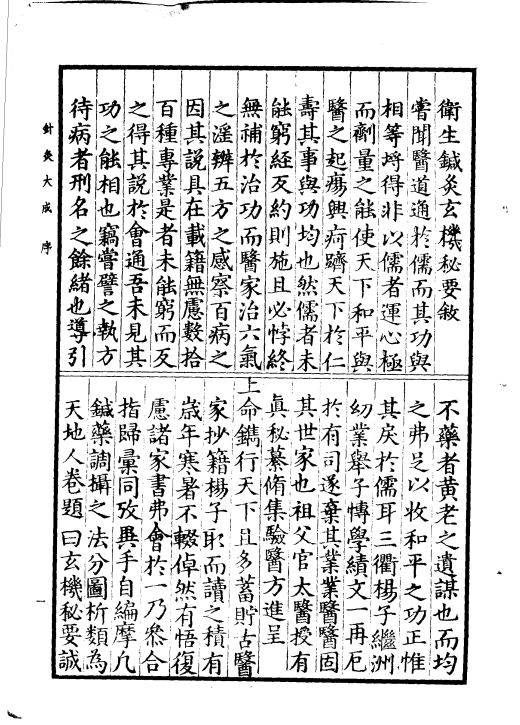 衛生鍼灸玄機秘要敘
嘗聞醫道通於儒而其功與
相等埓得非以儒者運心極
而劑量之能使天下和平與
醫之起瘍興疴躋天下於仁
壽其事與功均也然儒者未
能窮經反約則施且必悖終
無補於治功而醫家治六氣
之淫辨五方之感察百病之
因其說具在載籍無慮數拾
百種專業是者未能窮而反
之得其說於會通吾未見其
功之能相也竊嘗譬之執方
待病者刑名之餘緒也導引
不藥者黃老之遺謀也而均
之弗足以收和平之功正惟
其戾於儒耳三衢楊子繼洲
幼業舉子慱學績文一再厄
於有司遂棄其業業醫醫固
其世家也祖父官太醫授有
眞秘纂脩集驗醫方進呈
上命鐫行天下且多蓄貯古醫
家抄籍楊子取而讀之積有
歲年寒暑不輟倬然有悟復
慮諸家書弗會於一乃叅合
指歸彙同攷異手自編摩凡
鍼藥調攝之法分圖析類為
天地人卷題曰玄機秘要誠
針灸大成 序
一